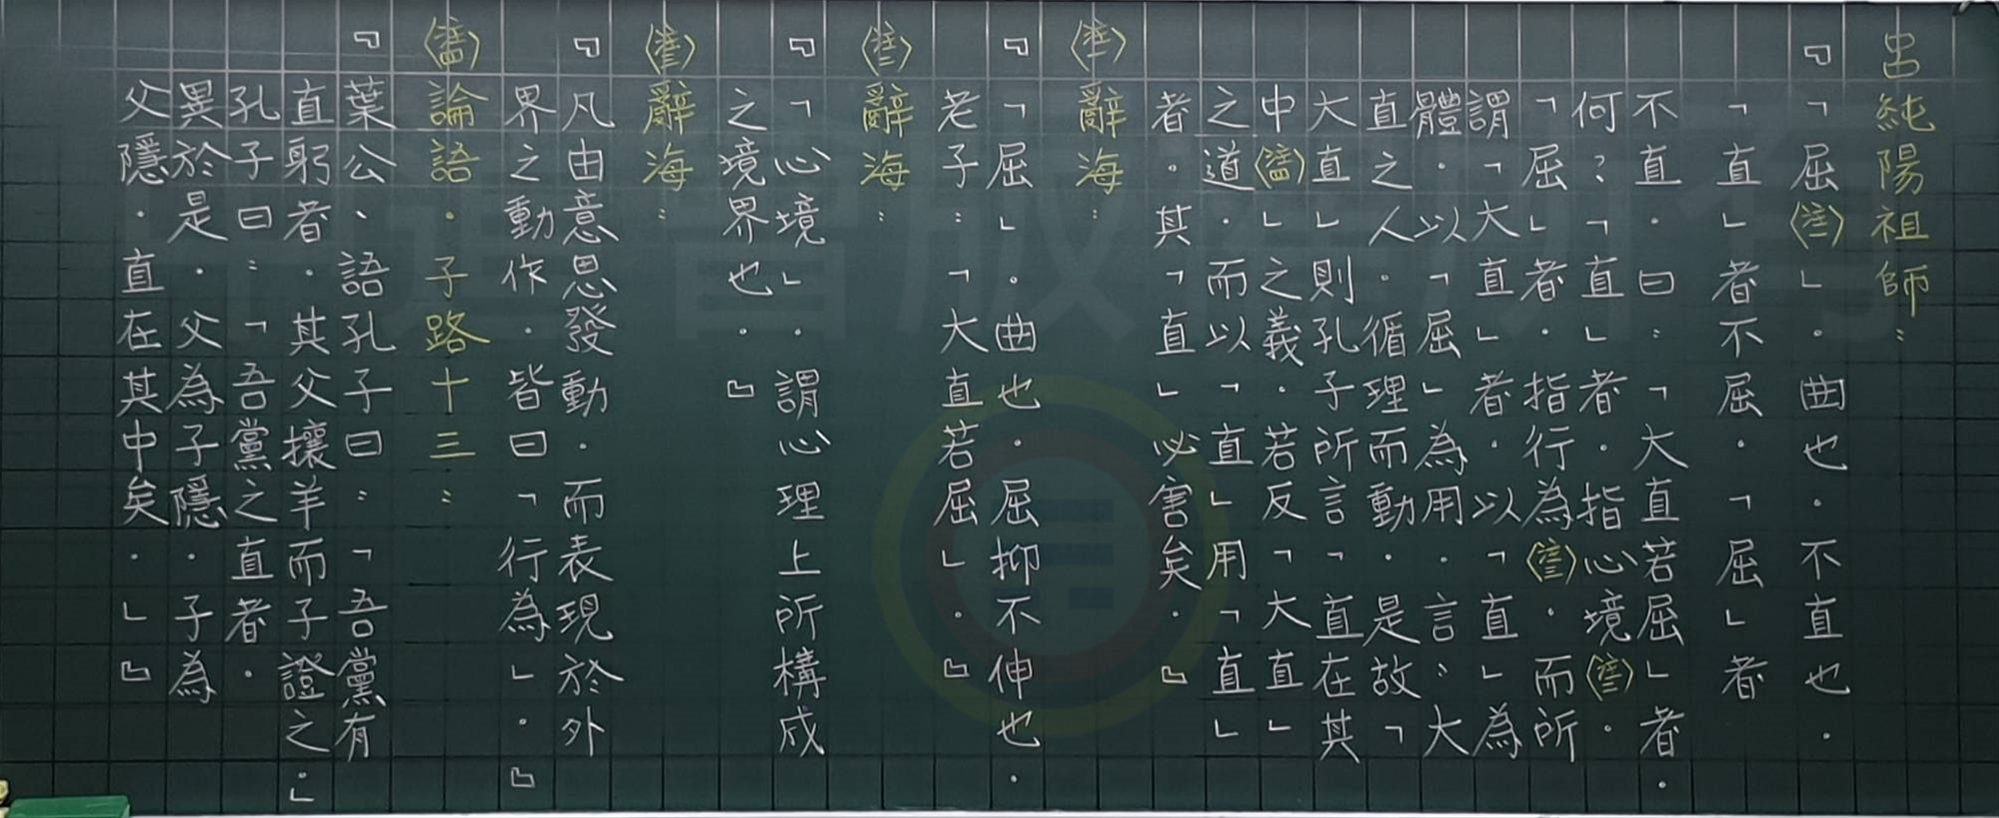 呂純陽祖師：
『「屈〈註一〉」．曲也．不直也．
「直」者不屈．「屈」者
不直．曰：「大直若屈」者．
何？「直」者．指心境〈註二〉．
「屈」者．指行為〈註三〉．而所
謂「大直」者．以「直」為
體．以「屈」為用．言：「大
直之人．循理而動．是故
大直」則孔子所言「直在其
中〈註四〉」之義．若反「大直」
之道．而以「直」用「直」
者．其「直」必害矣．』
〈註一〉辭海：
『「屈」．曲也．屈抑不伸也．
老子：「大直若屈」．』
〈註二〉辭海：
『「心境」．謂心理上所構成
之境界也．』
〈註三〉辭海：
『凡由意思發動．而表現於外
界之動作．皆曰「行為」．』
〈註四〉論語．子路十三：
『葉公、語孔子曰：「吾黨有
直躬者．其父攘羊而子證之．」
孔子曰：「吾黨之直者．
異於是．父為子隱．子為
父隱．直在其中矣．」』